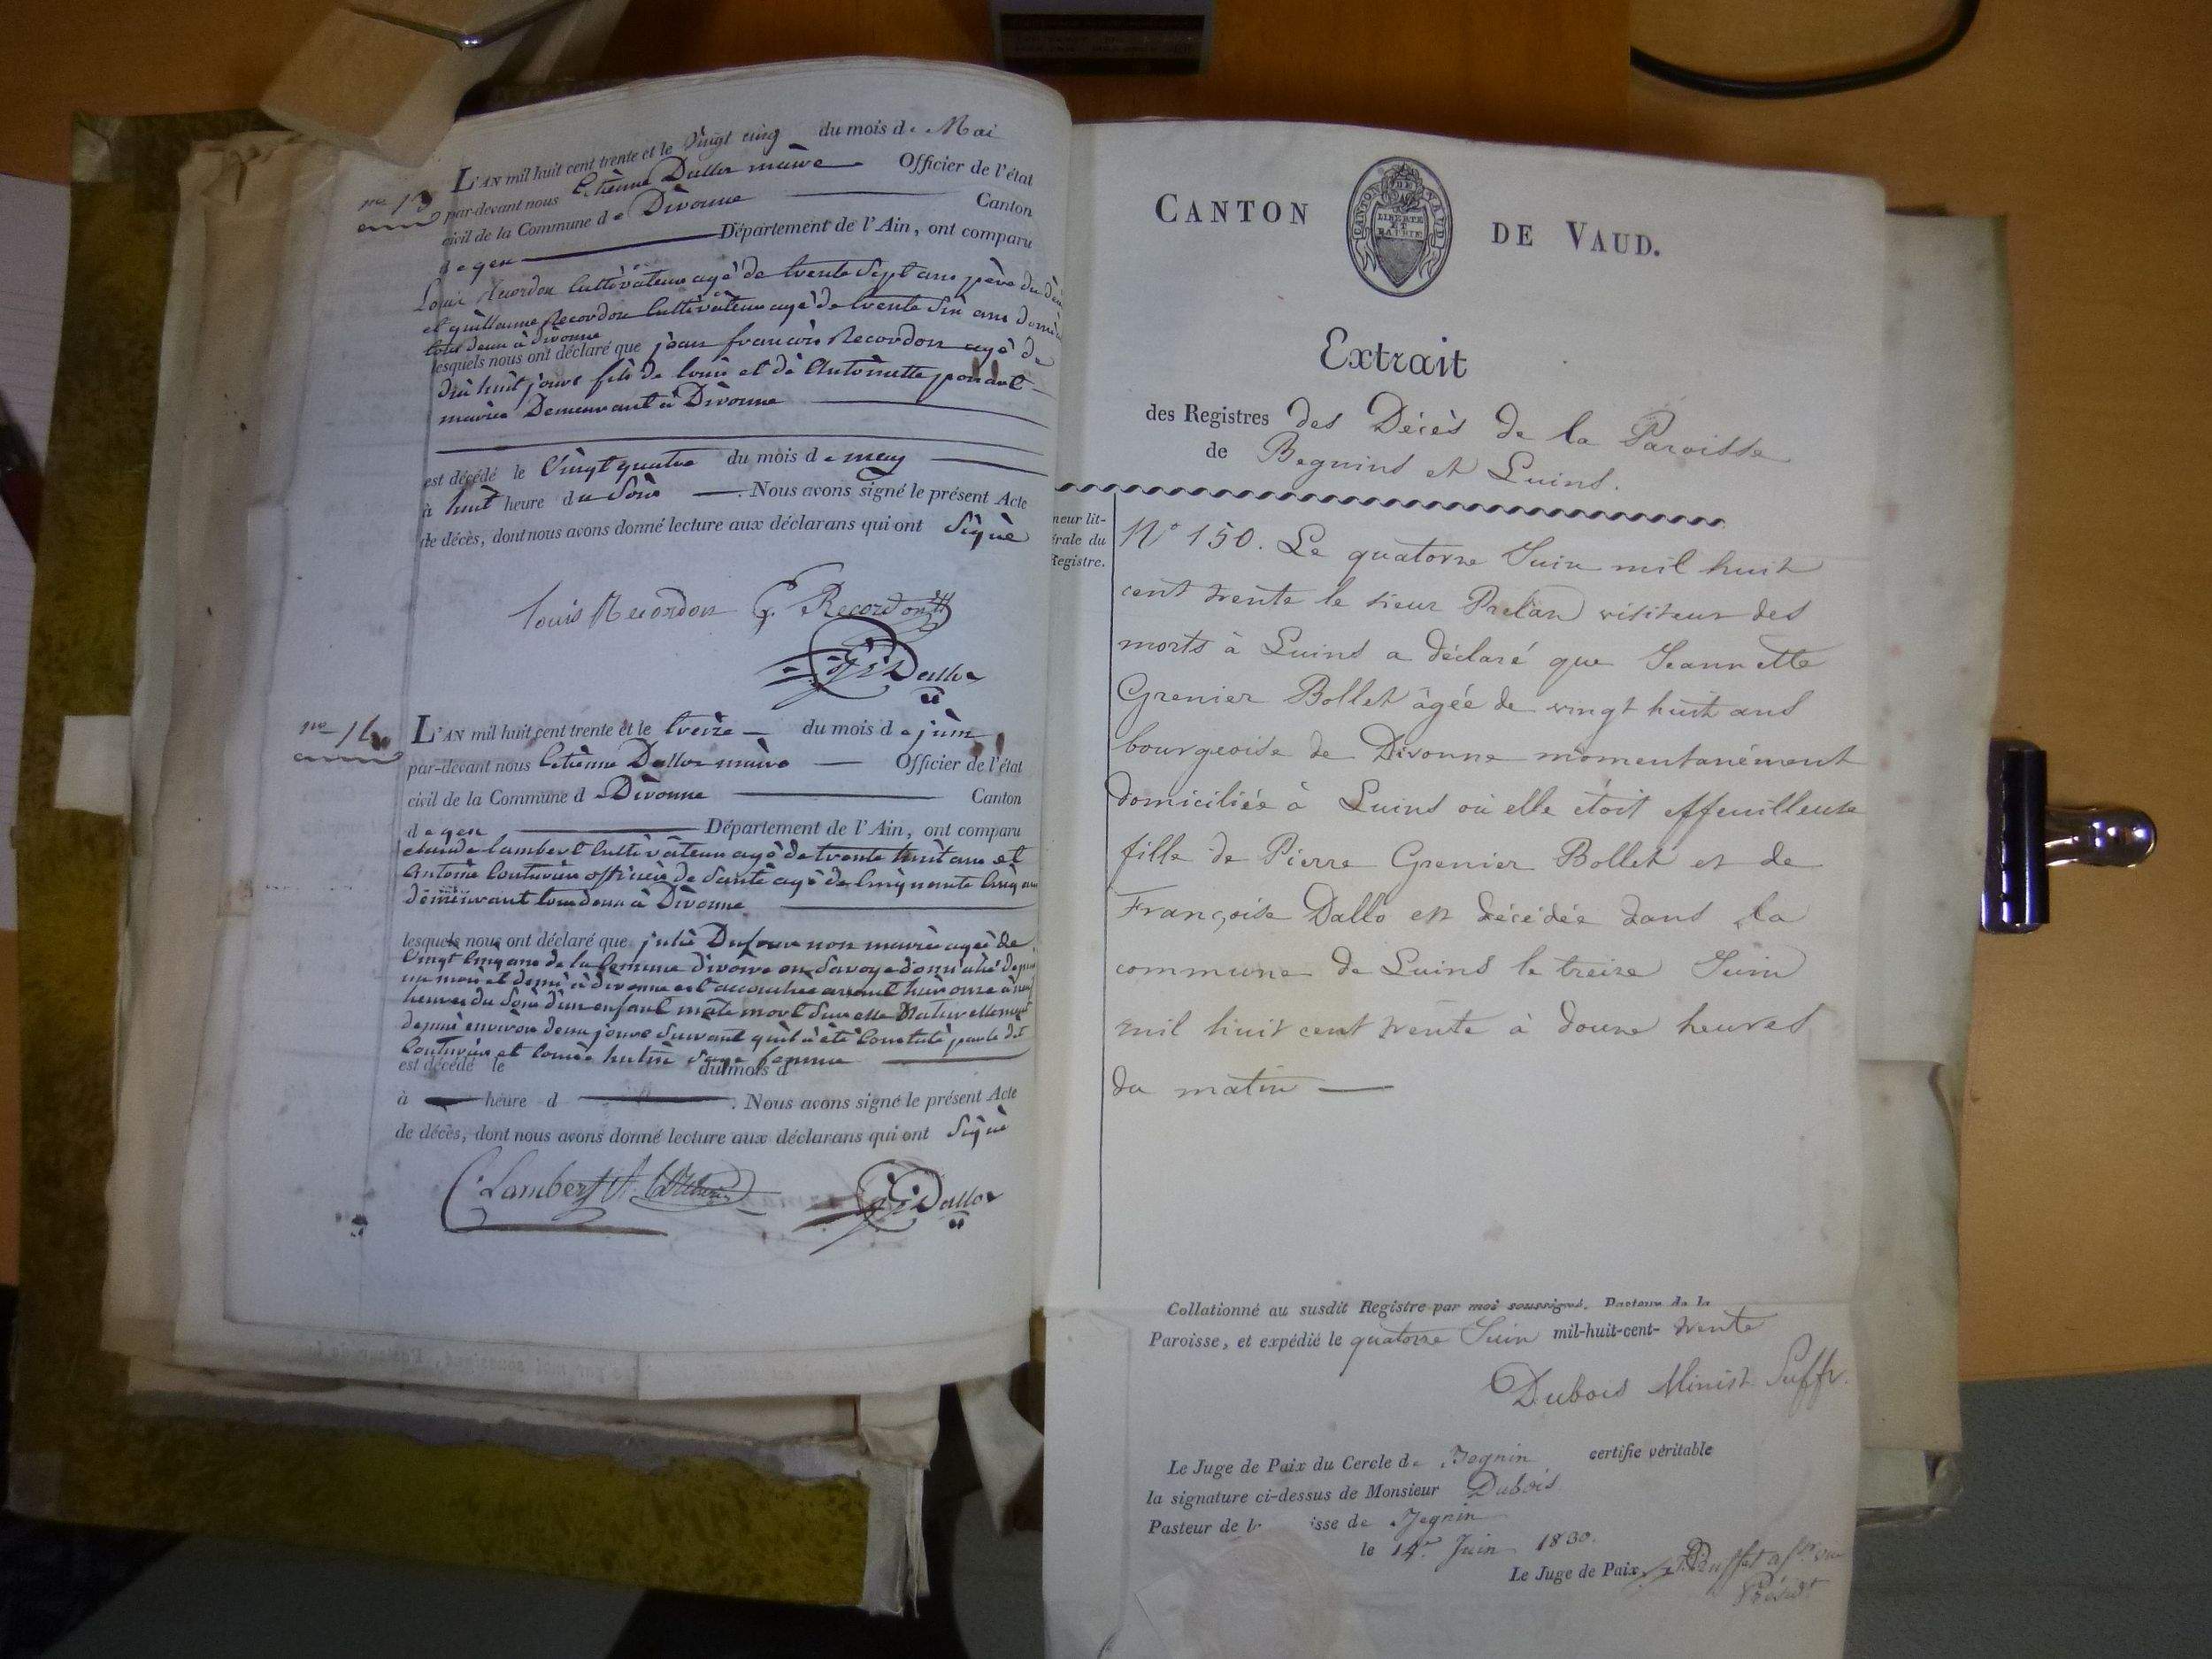 nº 13
L'AN mil huit cent trente et le Vingt cinq du mois de Mai
par-devant nous Etienne Dallos maire Officier de l'état
civil de la Commune de Divonne Canton
de gex Département de l'Ain, ont comparu
Louis Recordon Cultivateur agé de trente Sept ans père du
et guillaume Recordon Cultivateur agé de trente Six ans
tous deux à divonne
lesquels nous ont déclaré que jean francois Recordon agé de
dix huit jours fils de louis et de Antoinette ponant
mariés Demeurant à Divonne
est décédé le Vingt quatre du mois de may
à huit heure du Soir Nous avons signé le présent Acte
de décès, dont nous avons donné lecture aux déclarans qui ont Signé
Louis Recordon G. Recordon
Dallos
nº 14
L'AN mil huit cent trente et le treize du mois de juin
par-devant nous Etienne Dallos maire Officier de l'état
civil de la Commune de Divonne Canton
de gex Département de l'Ain, ont comparu
claude lambert Cultivateur agé de trente huit ans et
Antoine Couturier officier de Santé agé de Cinquante Cinq ans
demeurant tous deux à Divonne
lesquels nous ont déclaré que julie Dufour non mariée agée de
Vingt Cinq ans de la Commune d'ivoire en Savoye domicilié depuis
un mois et demi à divonne est accouchée avant hier onze à
heures du Soir d'un enfant mâle mort
depuis environ deux jours Suivant qu'il à été Constaté par le dit
Couturier et louise hutin Sage femme
est décédé le du mois d
à heure d . Nous avons signé le présent Acte
de décès, dont nous avons donné lecture aux déclarans qui ont Signé
C. Lambert A. Couturier Dallos
CANTON DE VAUD.
CANTON DE VAUD
LIBERTÉ ET PATRIE
Extrait
des Registres des Décès de la Paroisse
de Begnins et Luins.
neur lit-
érale du
Registre.
Nº 150. Le quatorze Juin mil huit
cent trente le sieur Prélaz visiteur des
morts à Luins a déclaré que Jeannette
Grenier Bollet âgée de vingt huit ans
bourgeoise de Divonne momentanément
domiciliée à Luins où elle étoit effeuilleuse
fille de Pierre Grenier Bollet et de
Françoise Dallo est décédée dans la
commune de Luins le treize Juin
mil huit cent trente à douze heures
du matin
Collationné au susdit Registre par moi soussigné, Pasteur de la
Paroisse, et expédié le quatorze Juin mil-huit-cent- trente
Dubois Minist. Suffr.
Le Juge de Paix du Cercle de Begnin certifie véritable
la signature ci-dessus de Monsieur Dubois
Pasteur de l isse de Begnin
le 14e Juin 1830.
Le Juge de Paix